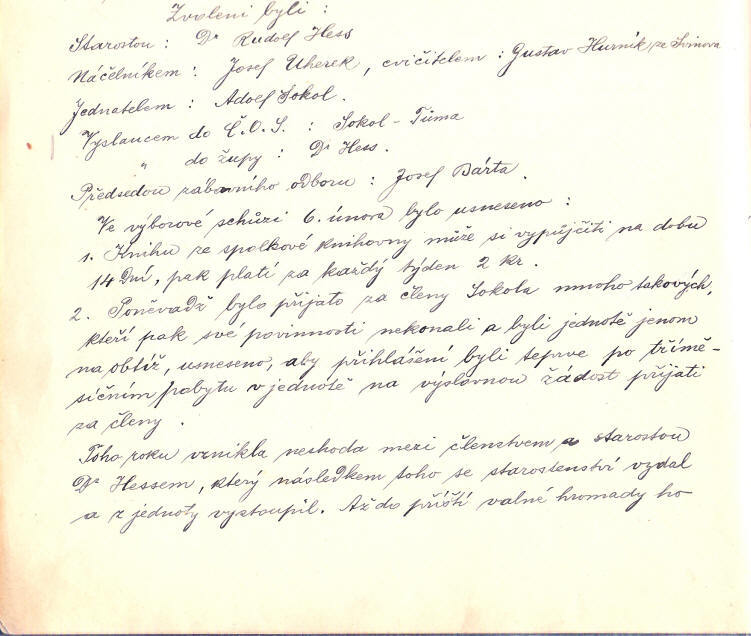 Zvoleni byli :
Starostou : Dr Rudolf Hess
Náčelníkem : Josef Uherek, cvičitelem : Gustav Hurník ze Svinova
Jednatelem : Adolf Sokol.
Vyslancem do Č.O.S. : Sokol - Tůma
" do župy : Dr Hess.
Předsedou zábavního odboru : Josef Bárta.
Ve výborové schůzi 6. února bylo usneseno :
1. Knihu ze spolkové knihovny může si vypůjčiti na dobu
14 Dní, pak platí za každý týden 2 kr.
2. Poněvadž bylo přijato za členy Sokola mnoho takových,
kteří pak své povinnosti nekonali a byli jednotě jenom
na obtíž, usneseno, aby přihlášení byli teprve po třímě-
síčním pobytu v jednotě na výslovnou žádost přijati
za členy.
Toho roku vznikla neshoda mezi členstvem a starostou
Dr Hessem, který následkem toho se starostenství vzdal
a z jednoty vystoupil. Až do příští valné hromady ho